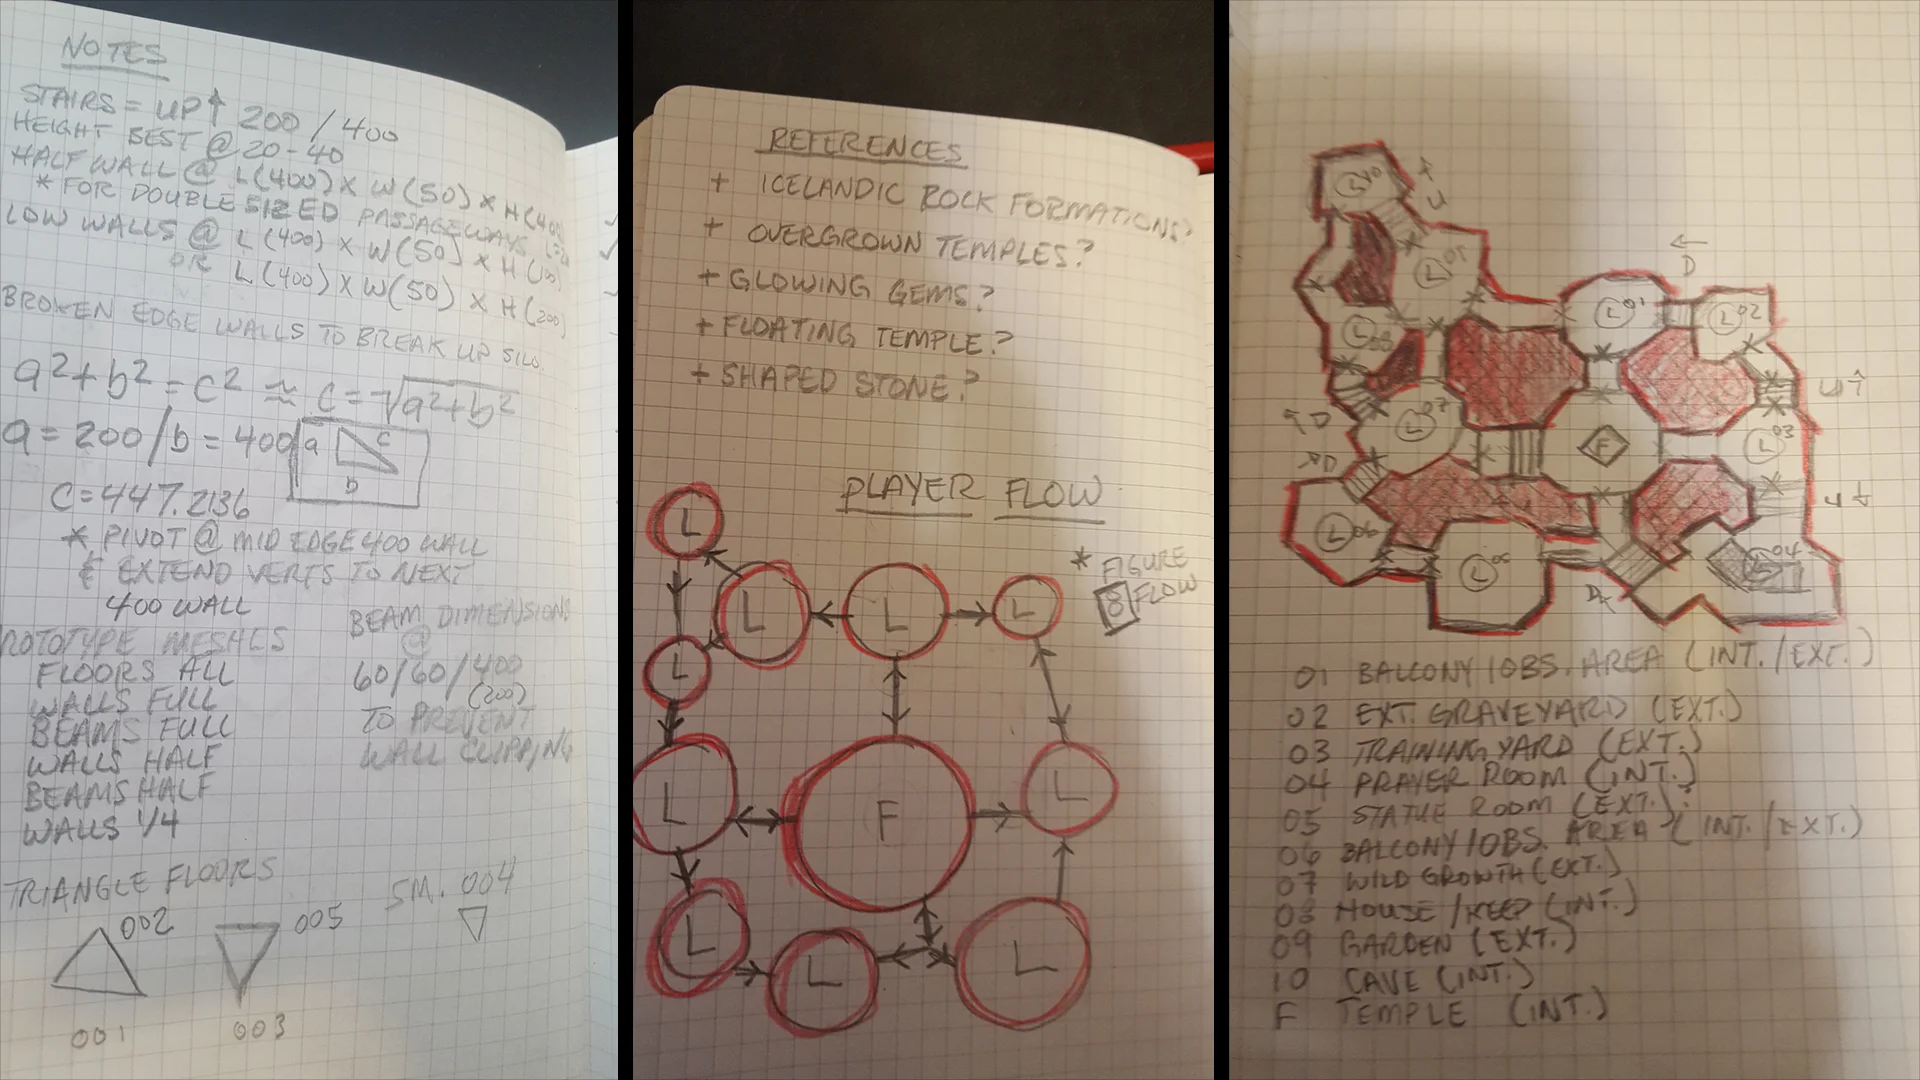 NOTES
STAIRS = UP↑ 200 / 400
HEIGHT BEST @ 20-40
HALF WALL @ L(400) X W(50) X H(400)
* FOR DOUBLE SIZED PASSAGEWAYS
LOW WALLS @ L(400) X W(50) X H
OR L(400) X W(50) X H(200)
BROKEN EDGE WALLS TO BREAK UP SILO.
a²+b² = c² ≈ c = √a²+b²
a = 200 / b = 400
a c
b
C = 447.2136
* PIVOT @ MID EDGE 400 WALL
& EXTEND VERTS TO NEXT
400 WALL
ROTOTYPE MESHES
FLOORS ALL
WALLS FULL
BEAMS FULL
WALLS HALF
BEAMS HALF
WALLS 1/4
BEAM DIMENSIONS
@
60/60/400
(200)
TO PREVENT
WALL CLIPPING
TRIANGLE FLOORS
002 005 SM. 004
001 003
REFERENCES
+ ICELANDIC ROCK FORMATIONS?
+ OVERGROWN TEMPLES?
+ GLOWING GEMS?
+ FLOATING TEMPLE?
+ SHAPED STONE?
PLAYER FLOW
* FIGURE
8 FLOW
L
L L L
L
L F L
L L L
L10 ↑ U
L09 ← D
L01 L02
L08
U↑
↑D L07 F L03
↗D U↓
L06 L05 04
D↖
01 BALCONY / OBS. AREA (INT./EXT.)
02 EXT. GRAVEYARD (EXT.)
03 TRAINING YARD (EXT.)
04 PRAYER ROOM (INT.)
05 STATUE ROOM (EXT.)?
06 BALCONY / OBS. AREA (INT./EXT.)
07 WILD GROWTH (EXT.)
08 HOUSE/KEEP (INT.)
09 GARDEN (EXT.)
10 CAVE (INT.)
F TEMPLE (INT.)